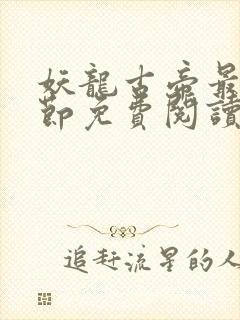 妖龍古帝最
節免費閱讀
追趕流星的人